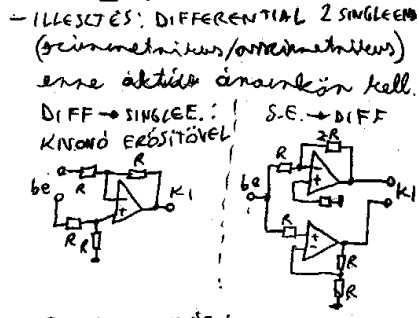 - ILLESZTÉS: DIFFERENTIAL 2 SINGLEEND
(szimmetrikus/asszimetrikus)
enne aktív áramkör kell.
DIFF → SINGLEE.:
KIVONÓ ERŐSÍTŐVEL
S.E. → DIFF
be R R R R KI
be R 2R R R R KI